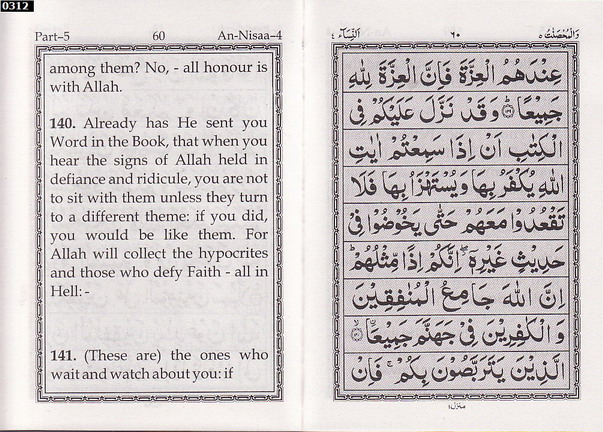 0312
Part–5 60 An-Nisaa–4
among them? No, - all honour is
with Allah.
140. Already has He sent you
Word in the Book, that when you
hear the signs of Allah held in
defiance and ridicule, you are not
to sit with them unless they turn
to a different theme: if you did,
you would be like them. For
Allah will collect the hypocrites
and those who defy Faith - all in
Hell:-
141. (These are) the ones who
wait and watch about you: if
وَالْمُحْصَنٰتُ ٥ ٦٠ اَلنِّسَآء ٤
عِنْدَهُمُ الْعِزَّةَ فَاِنَّ الْعِزَّةَ لِلّٰهِ
جَمِيْعًا ۝١٣٩ وَقَدْ نَزَّلَ عَلَيْكُمْ فِى
الْكِتٰبِ اَنْ اِذَا سَمِعْتُمْ اٰيٰتِ
اللّٰهِ يُكْفَرُ بِهَا وَيُسْتَهْزَاُ بِهَا فَلَا
تَقْعُدُوْا مَعَهُمْ حَتّٰى يَخُوْضُوْا فِىْ
حَدِيْثٍ غَيْرِهٖۤ ۖ اِنَّكُمْ اِذًا مِّثْلُهُمْ ؕ
اِنَّ اللّٰهَ جَامِعُ الْمُنٰفِقِيْنَ
وَالْكٰفِرِيْنَ فِىْ جَهَنَّمَ جَمِيْعًا ۝١٤٠
الَّذِيْنَ يَتَرَبَّصُوْنَ بِكُمْ ۚ فَاِنْ
منزل ١